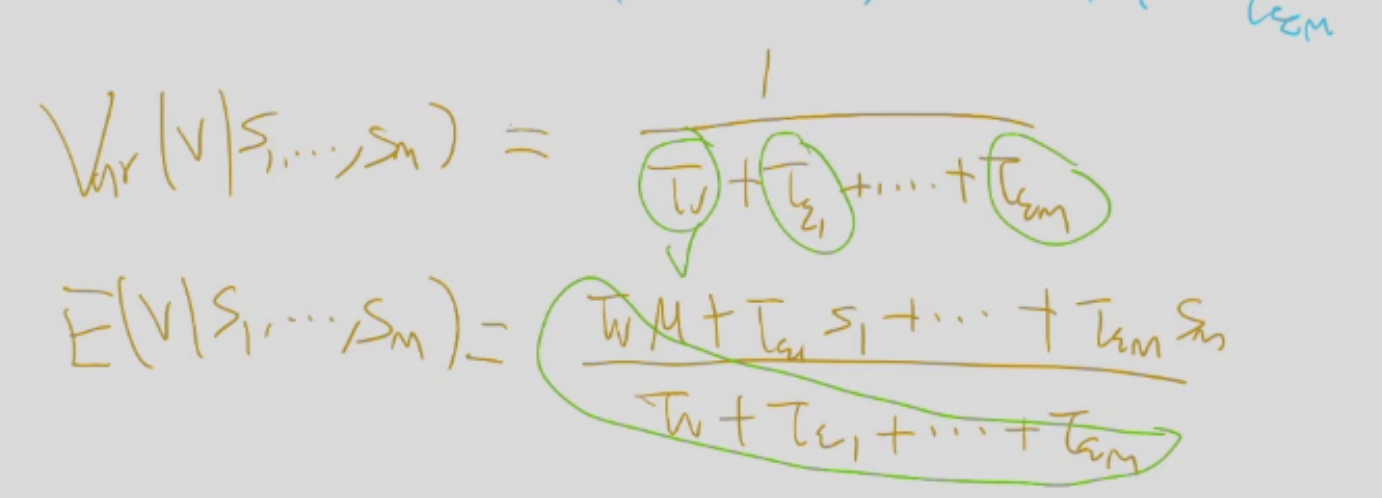 τ_{εM}
Var(V|S₁,...,Sₘ) = 1 / (τᵥ + τ_{ε₁} + .... + τ_{εM})
E(V|S₁,...,Sₘ) = (τᵥ μ + τ_{ε₁} S₁ + ... + τ_{εM} Sₘ) / (τᵥ + τ_{ε₁} + ... + τ_{εM})